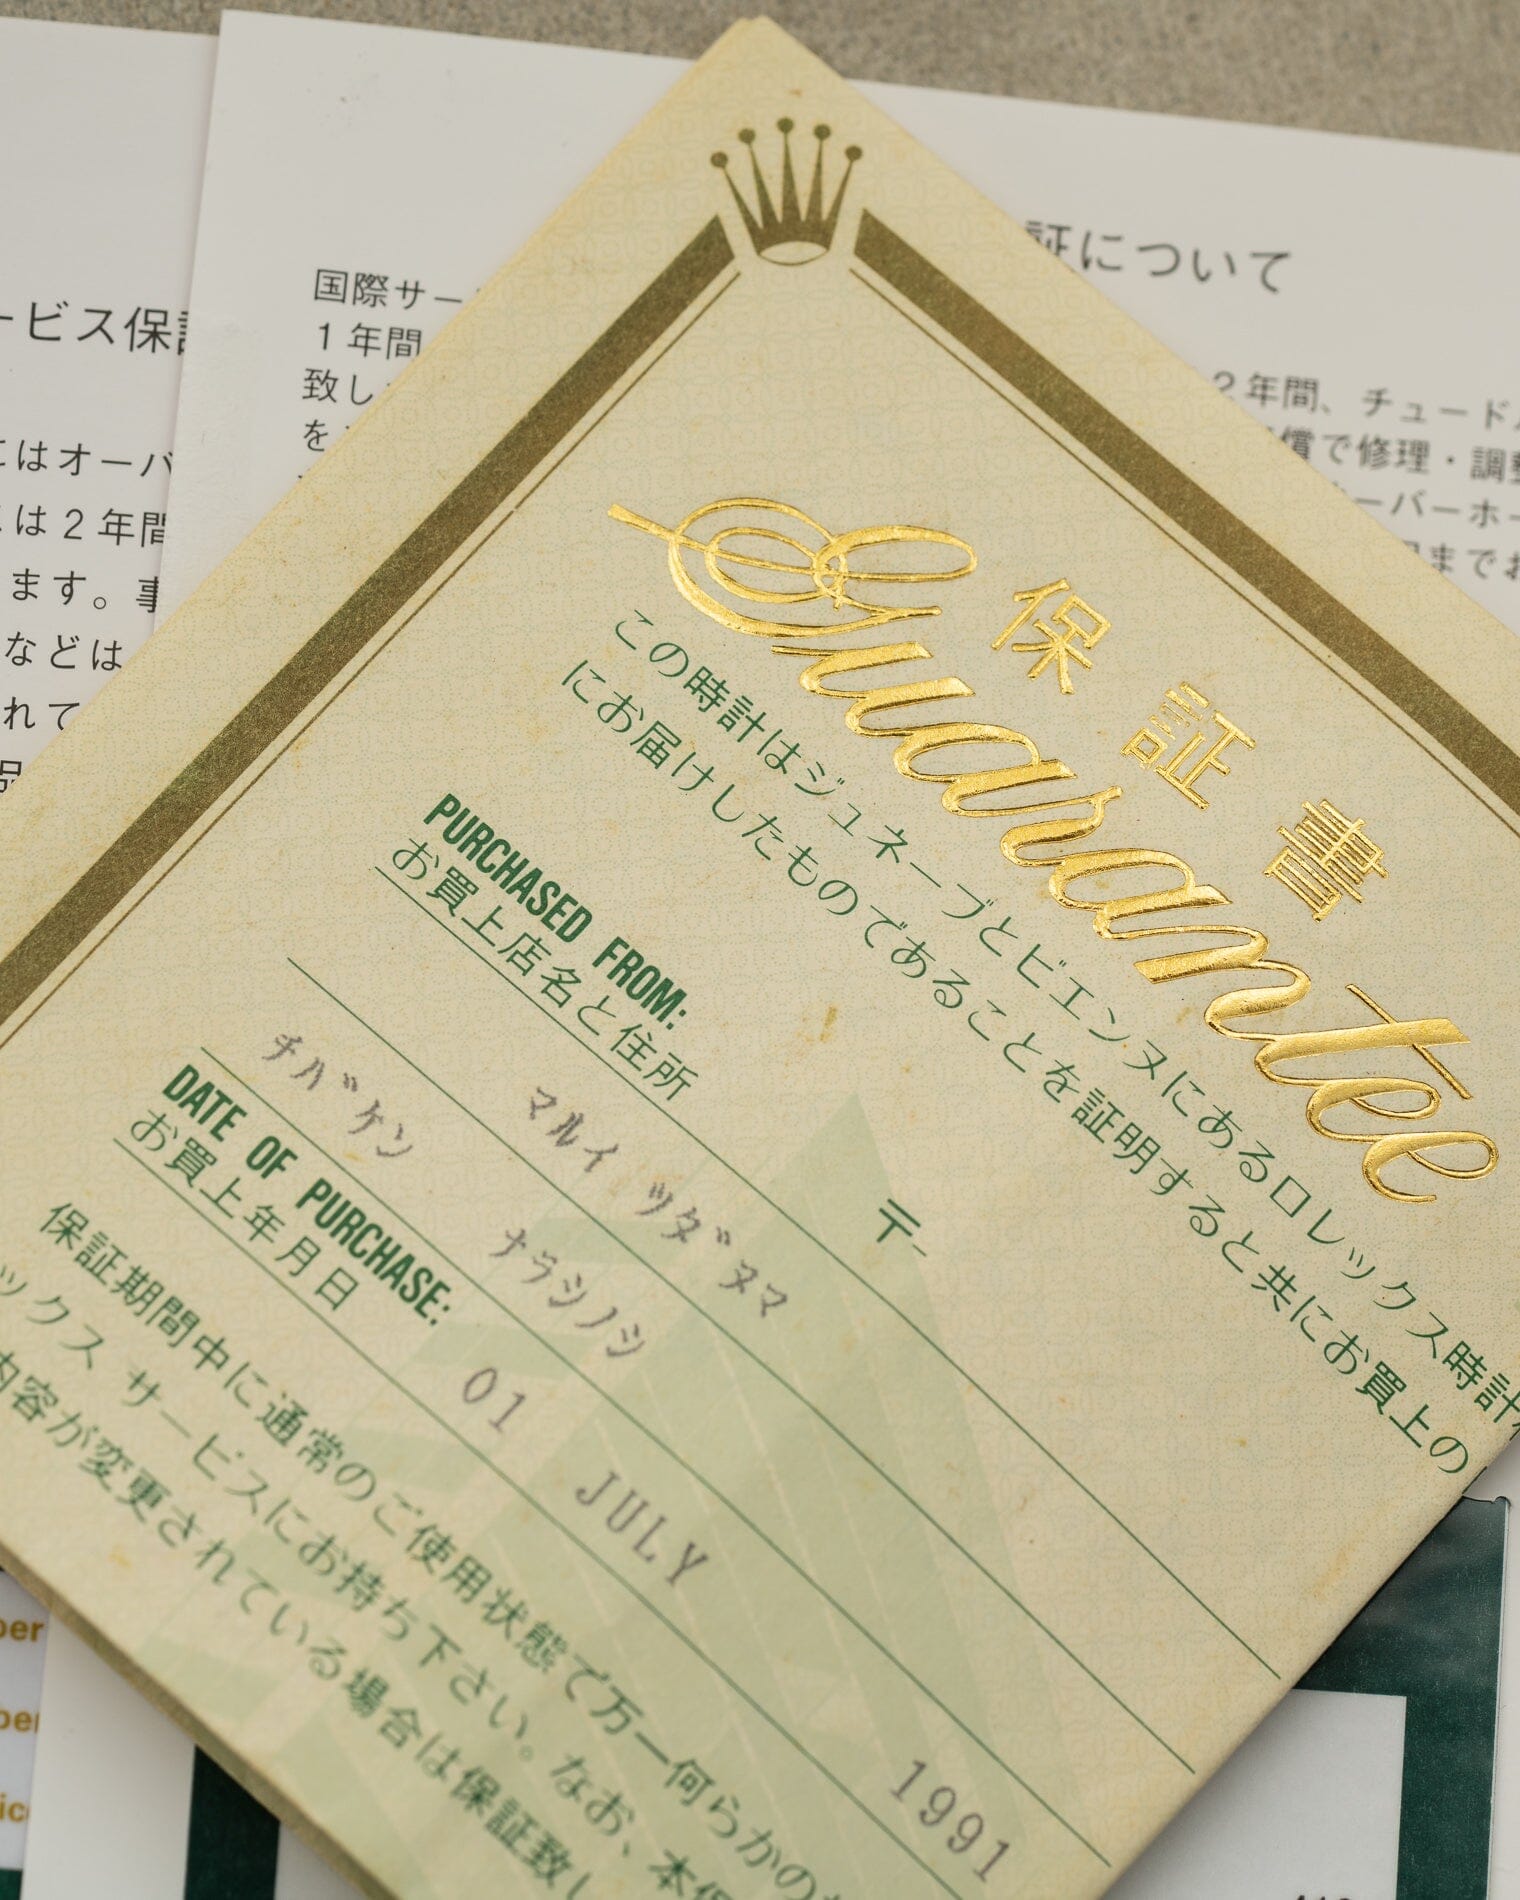 保証書
Guarantee
この時計はジュネーブとビエンヌにあるロレックス時計
にお届けしたものであることを証明すると共にお買上の
PURCHASED FROM:
お買上店名と住所
〒-
マルイ ツダ゛ヌマ
チハ゛ケン ナラシノシ
DATE OF PURCHASE:
お買上年月日
01 JULY 1991
保証期間中に通常のご使用状態で万一何らかの
ックス サービスにお持ち下さい。なお、本保
内容が変更されている場合は保証致し
ービス保証
にはオーバ
は2年間
ます。事
などは
れて
品
証について
国際サー
1年間
致し
を
2年間、チュードル
償で修理・調整
ーバーホー
までお